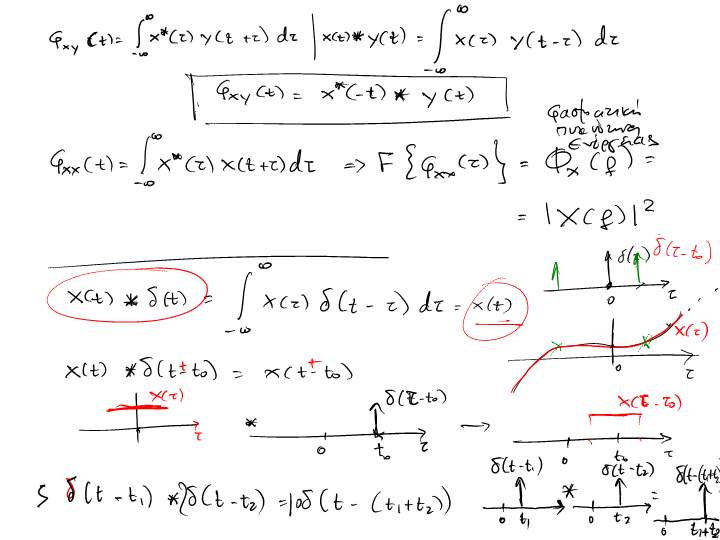 φxy (t) = ∫_{-∞}^{∞} x*(τ) y(t+τ) dτ | x(t) * y(t) = ∫_{-∞}^{∞} x(τ) y(t-τ) dτ
φxy(t) = x*(-t) * y(t)
φασματική
πυκνότητα
Ενέργειας
φxx(t) = ∫_{-∞}^{∞} x*(τ) x(t+τ) dτ => F {φxx(τ)} = Φx(f) =
= |X(f)|²
δ(τ) δ(τ-t₀)
0 τ
x(t) * δ(t) = ∫_{-∞}^{∞} x(τ) δ(t-τ) dτ = x(t)
x(τ)
0 τ
x(t) * δ(t±t₀) = x(t±t₀)
x(τ) τ
* δ(τ-t₀) 0 t₀ τ →
x(τ-τ₀) 0 t₀ τ
5 δ(t-t₁) * 2δ(t-t₂) = 10δ(t-(t₁+t₂))
δ(t-t₁) 0 t₁ * δ(t-t₂) 0 t₂ = δ(t-(t₁+t₂ 0 t₁+t₂